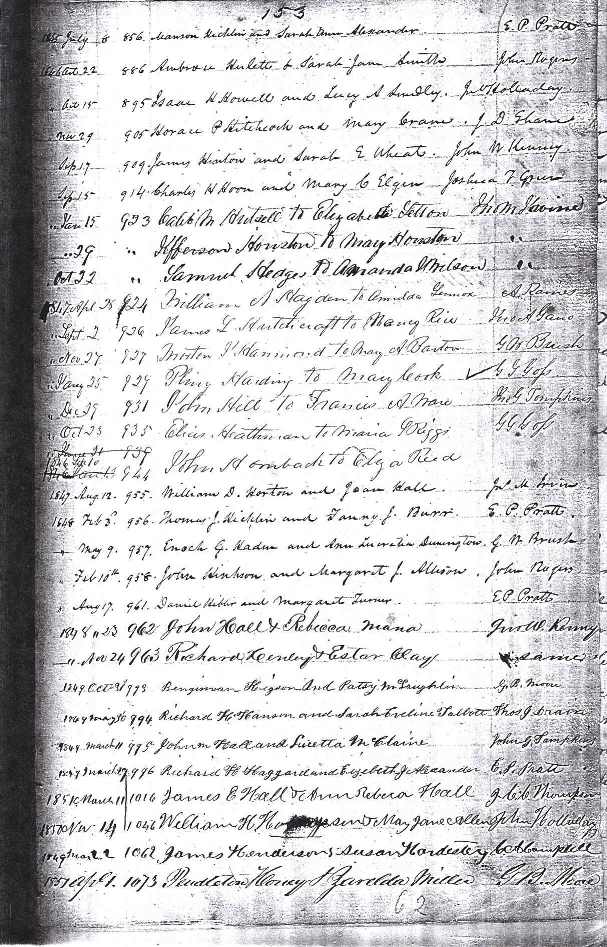 153
1845 July 8 856 Manson Hicklin and Sarah Ann Alexander. E. P. Pratt
1846 Oct 22 886 Ambrose Hulett & Sarah Jane Smith John Rogers
" Oct 15 895 Isaac H Howell and Lucy A Smdley. Holladay
" Nov 29 905 Horace P Hitchcock and Mary Crane. J. D.
" Sep 17 909 James Hinton and Sarah E Wheat. John W Kenney
" Sep 15 914 Charles H Hoon and Mary C Elgin Joshua T
" Jan 15 923 Caleb M Hutsell to Elizabeth Letton
" " 29 " Jefferson Houston to May Houston "
" Oct 22 " Samuel Hedges to Amanda Wilson "
1847 Apl 28 924 William A Hayden to Amelda Lennox
" Sept. 2 926 James L Hutchcraft to Nancy Rice
" Nov 27 927 Morton J. Hammond to May A Barton G W Brush
" Jany 25 929 Pliny Harding to Mary Cook ✓ G G Goss
" Dec 29 931 John Hill to Francis A Ware Tho G Tompkins
" Oct 23 935 Elias Heathman to Maria G Riggs G G Goss
939
1846 944 John Hornback to Elza Reed
1847 Aug 12. 955. William D. Horton and Joan Hall. Jno M. Irvin
1848 Feb 3d. 956. Thomas J. Hicklin and Fanny J. Burr. E. P. Pratt.
" May 9. 957. Enoch G. Haden and Ann Lucretia G. W Brush
" Feb 10th. 958. John Hinkson and Margaret J. Allison. John Rogers
" Aug 17. 961. Daniel Hibler and Margaret Turner. E P Pratt
1848 " 23 962 John Hall & Rebecca Mana Jno W. Kenny
" Nov 24 963 Richard Henley & Estar Clay same
1849 Oct 993 Benginman Higson And Patsy McLaughlin G. B. Moore
1849 May 994 Richard H. Hanson and Sarah Eveline Talbott Thos J
1849 March 11 995 John M Hall and Luzetta McClaine John G Tompkins
1849 March 27 996 Richard H Haggard and Elizebeth J Alexander E. P. Pratt
1850 March 11 1016 James E Hall & Ann Rebeca Hall J. C. C. Thompson
1850 Nov. 14 1046 William H. & May Jane Allen John Holladay
1849 22 1062 James Henderson & Susan Hardesty Campbell
1851 Apl 1. 1073 Pendleton Honey & Zarelda Miller G. B. Moore
62